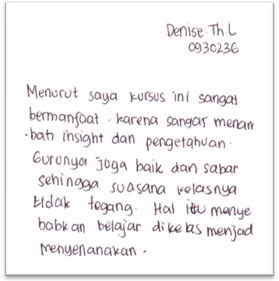 Denise Th L
0930236
Menurut saya kursus ini sangat
bermanfaat. karena sangat menam
-bah insight dan pengetahuan.
Gurunya juga baik dan sabar
sehingga suasana kelasnya
tidak tegang. Hal itu menye
babkan belajar di kelas menjad
menyenanakan.